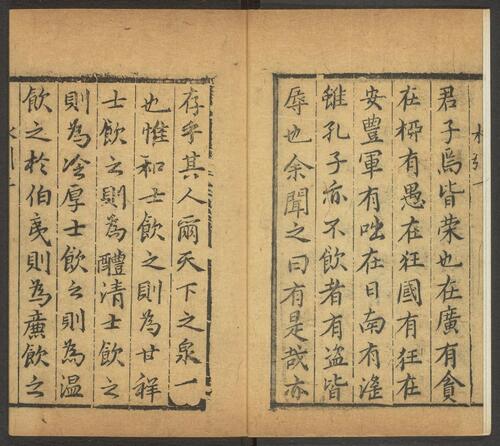 君子焉皆荣也在廣有貪
在柳有愚在狂國有狂在
安豊軍有咄在日南有滛
雖孔子亦不飲者有盗皆
辱也余聞之曰有是哉亦
存乎其人爾天下之泉一
也惟和士飲之則為甘祥
士飲之則為醴清士飲之
則為冷厚士飲之則為温
飲之於伯夷則為廉飲之